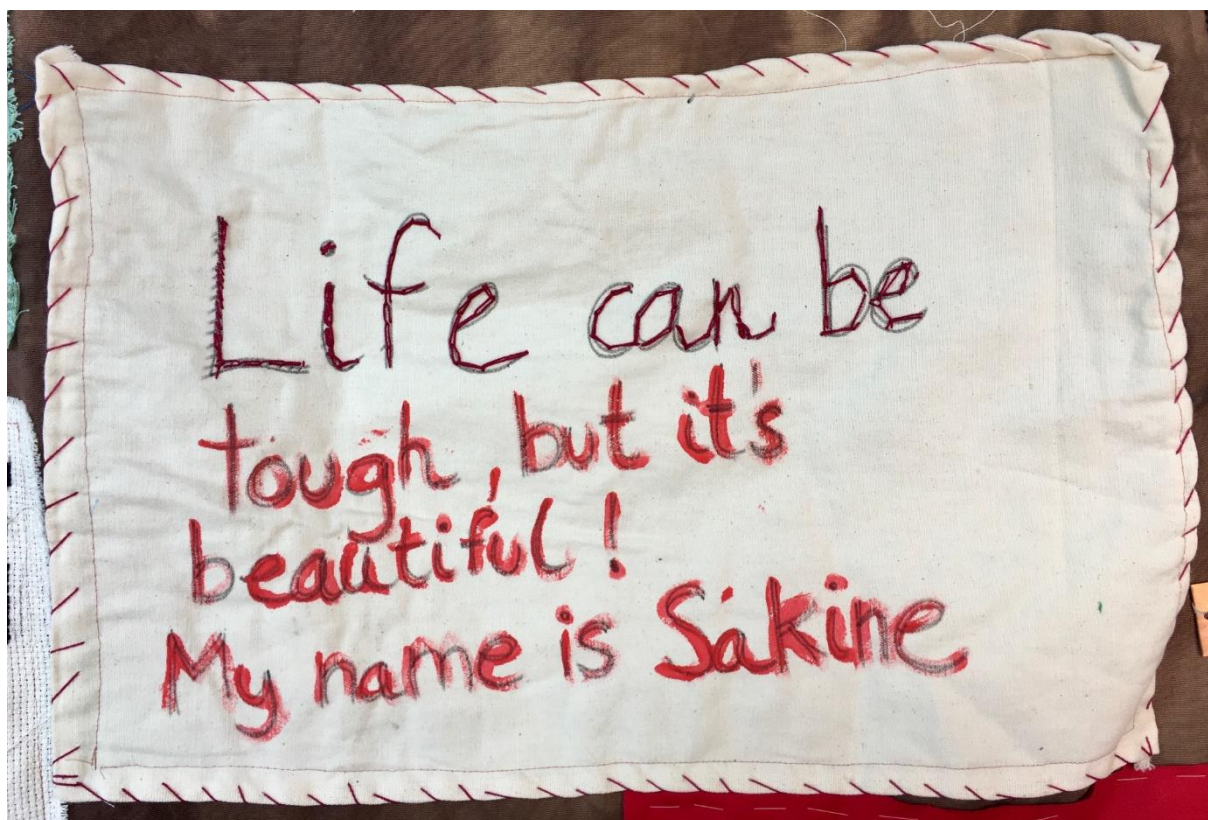 Life can be
tough, but it's
beautiful!
My name is Sakine